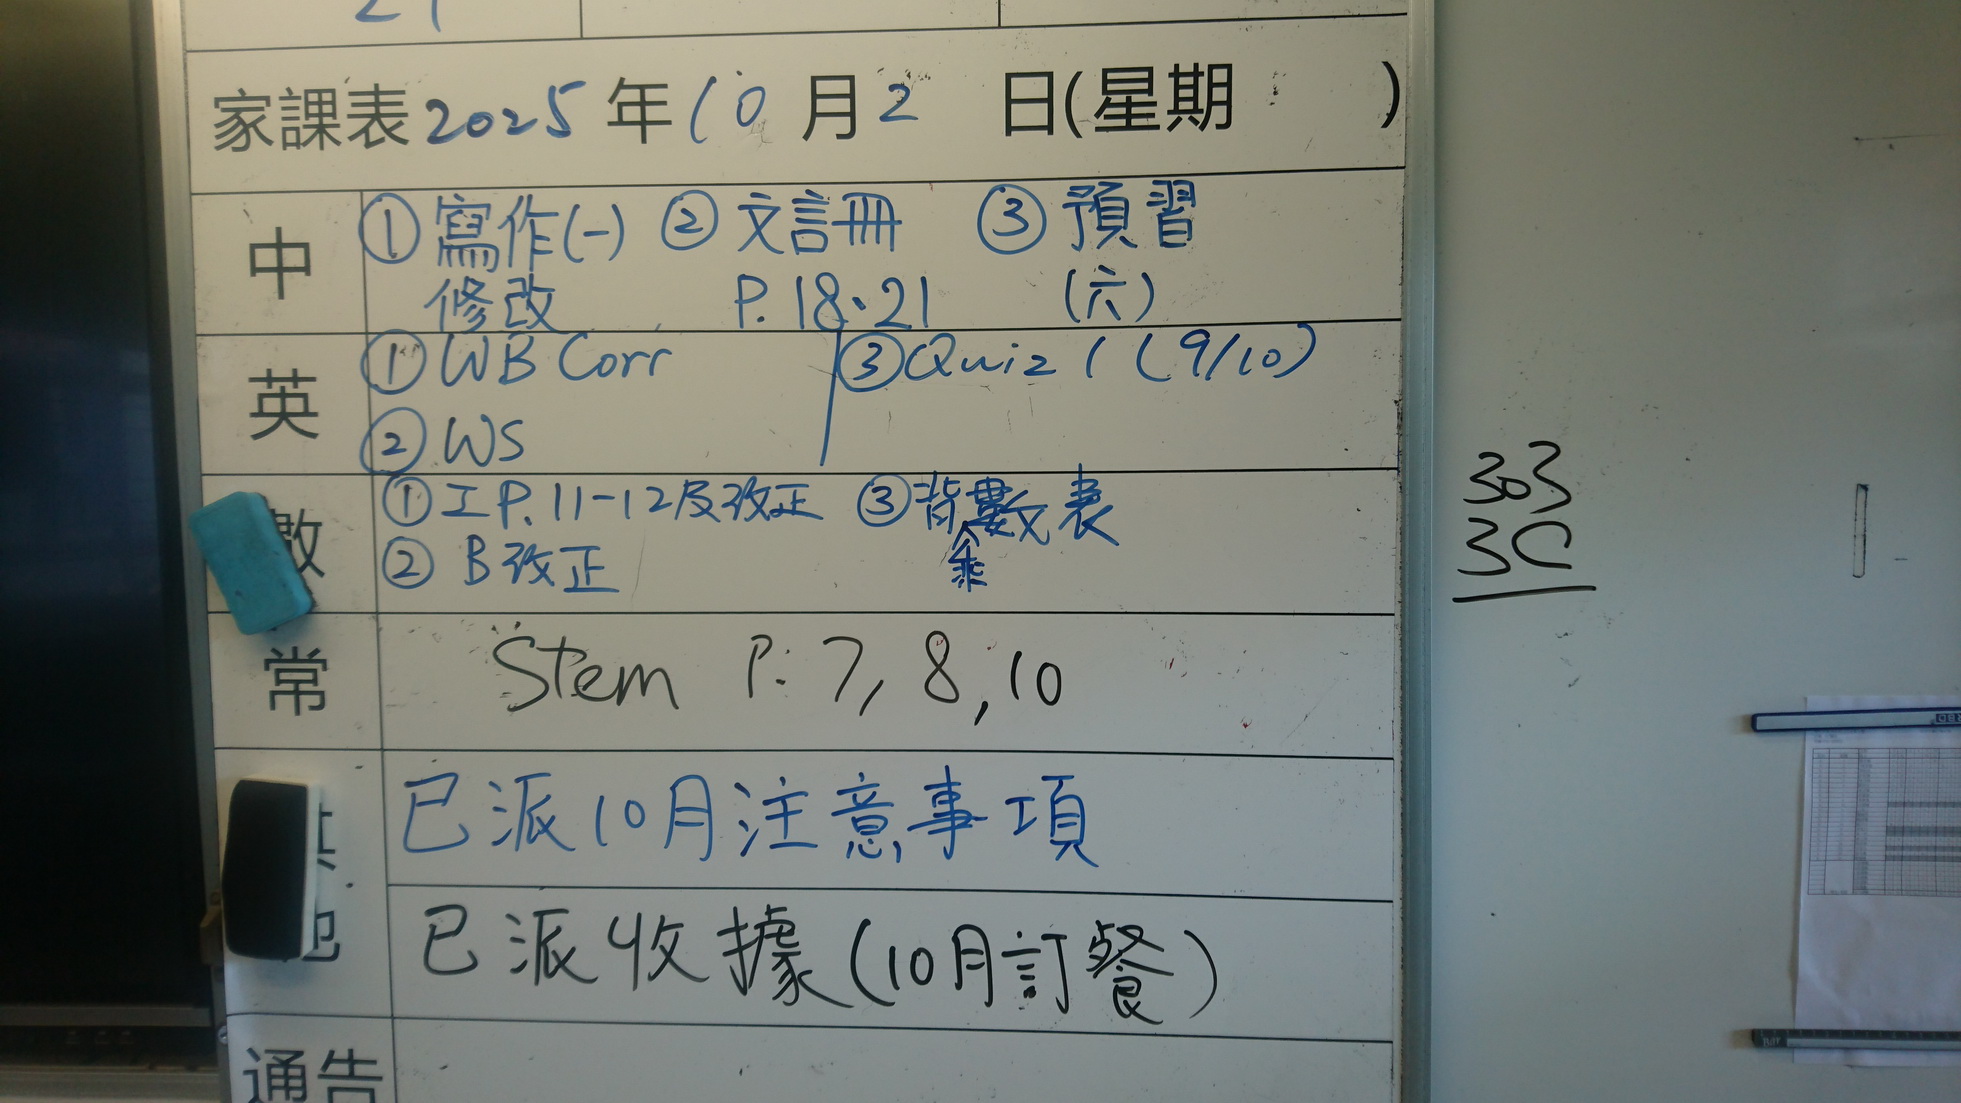 家課表2025年10月2日(星期 )
中
①寫作(一) ②文言冊 ③預習
修改 P.18、21 (六)
英
①WB Corr ③Quiz 1 (9/10)
②WS
數
①工P.11-12及改正 ③背乘數表
②B改正
常
Stem P. 7, 8, 10
已派10月注意事項
已派收據(10月訂餐)
通告
303
3C